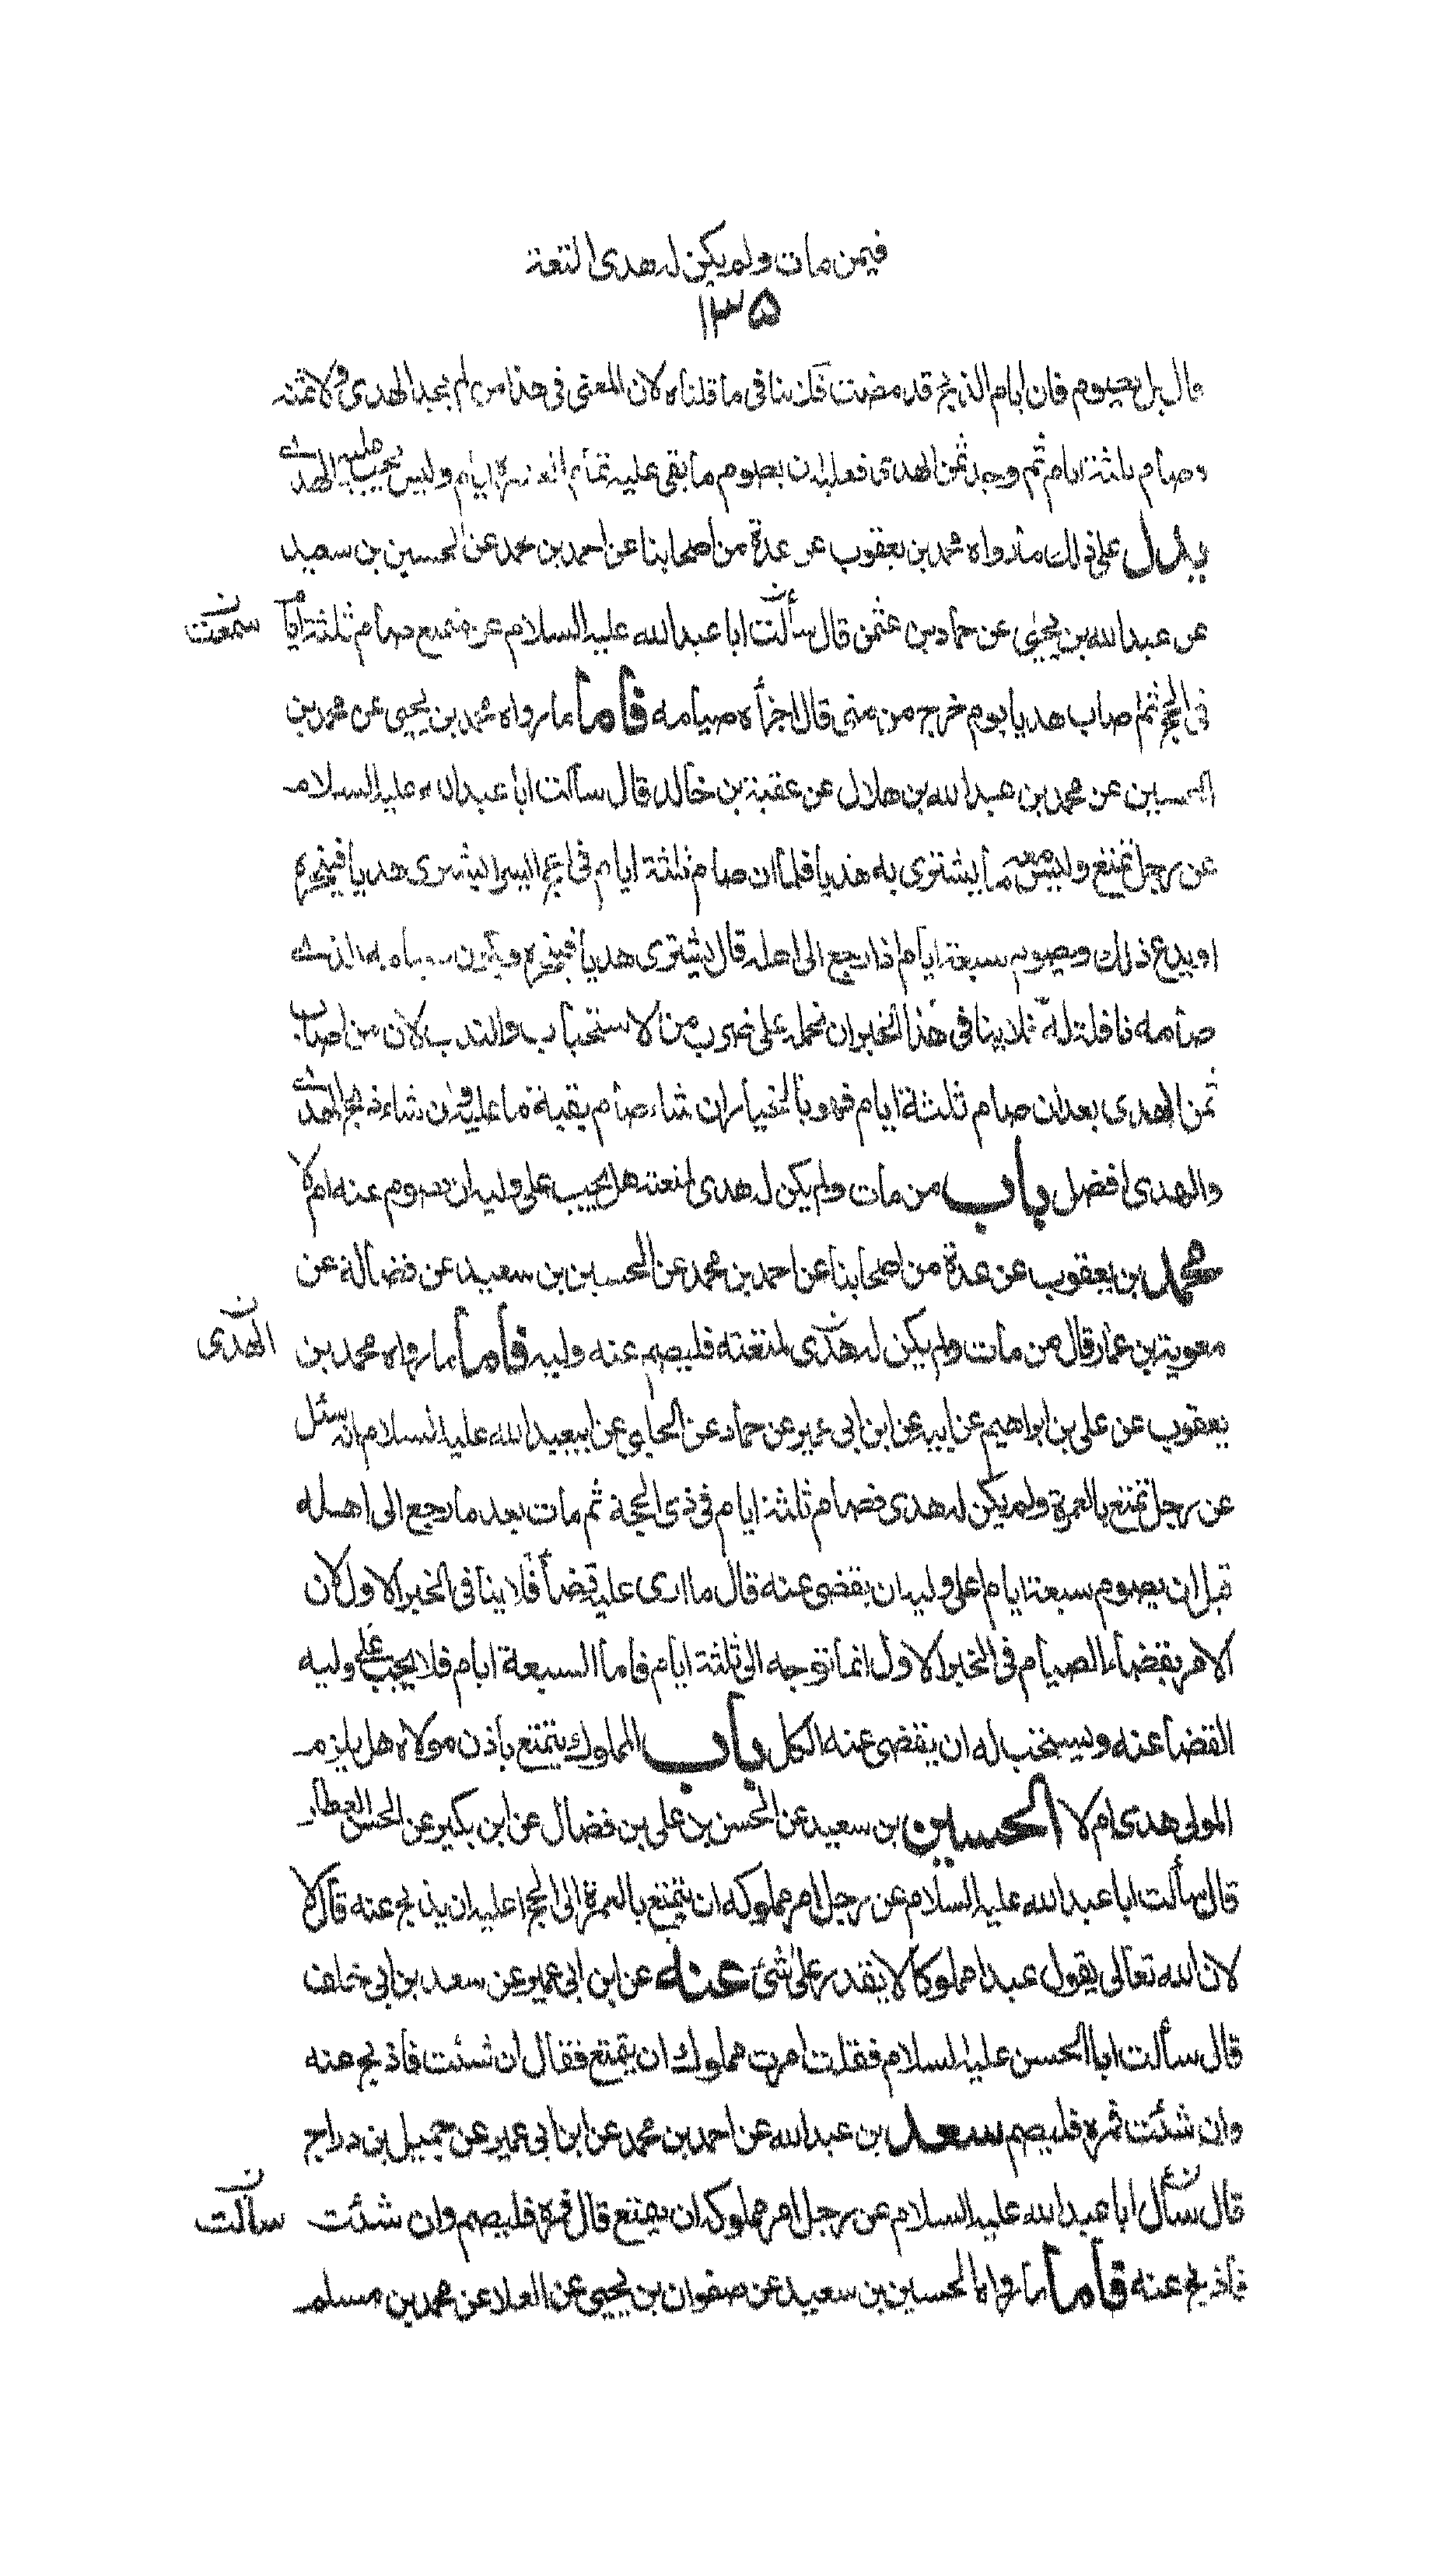 فيمن مات ولم يكن له هدى المتعة
١٣٥
قال بل يصوم فان ايام الذبح قد مضت فلا ينافى ما قلناه لان المعنى فى هذا من لم يجد الهدى ولا ثمنه
وصام ثلثة ايام ثم وجد ثمن الهدى فعليه ان يصوم ما بقى عليه تمام العشرة ايام وليس يجب عليه الهدى
يدل على ذلك ما رواه محمد بن يعقوب عن عدة من اصحابنا عن احمد بن محمد عن الحسين بن سعيد
عن عبدالله بن يحيى عن حماد بن عثمن قال سألت ابا عبدالله عليه السلام عن متمتع صام ثلثة ايام
سمعت
فى الحج ثم اصاب هديا يوم خرج من منى قال اجزأه صيامه فاما ما رواه محمد بن يحيى عن محمد بن
الحسين عن محمد بن عبدالله بن هلال عن عقبة بن خالد قال سألت ابا عبدالله عليه السلام
عن رجل تمتع وليس معه ما يشترى به هديا فلما ان صام ثلثة ايام فى الحج ايسر ايشترى هديا فينحره
او يدع ذلك ويصوم سبعة ايام اذا رجع الى اهله قال يشترى هديا فينحره ويكون صيامه الذى
صامه نافلة له فلا ينافى هذا الخبر ان نحمله على ضرب من الاستحباب والندب لان من اصاب
ثمن الهدى بعد ان صام ثلثة ايام فهو بالخيار ان شاء صام بقية ما عليه وان شاء ذبح الهدى
والهدى افضل باب من مات ولم يكن له هدى لمتعته هل يجب على وليه ان يصوم عنه ام لا
محمد بن يعقوب عن عدة من اصحابنا عن احمد بن محمد عن الحسين بن سعيد عن فضالة عن
معوية بن عمار قال من مات ولم يكن له هدى لمتعته فليصم عنه وليه فاما ما رواه محمد بن
الهدى
يعقوب عن على بن ابراهيم عن ابيه عن ابن ابى عمير عن حماد عن الحلبى عن ابيعبدالله عليه السلام انه سئل
عن رجل تمتع بالعمرة ولم يكن له هدى فصام ثلثة ايام فى ذى الحجة ثم مات بعد ما رجع الى اهله
قبل ان يصوم سبعة ايام اعلى وليه ان يقضى عنه قال ما ارى عليه قضاء فلا ينافى الخبر الاول لان
الامر بقضاء الصيام فى الخبر الاول انما توجه الى ثلثة ايام فاما السبعة ايام فلا يجب على وليه
القضا عنه ويستحب له ان يقضى عنه الكل باب المملوك يتمتع باذن مولاه هل يلزم
المولى هدى ام لا الحسين بن سعيد عن الحسن بن على بن فضال عن ابن بكير عن الحسن العطار
قال سألت ابا عبدالله عليه السلام عن رجل امر مملوكه ان يتمتع بالعمرة الى الحج اعليه ان يذبح عنه قال لا
لان الله تعالى يقول عبدا مملوكا لا يقدر على شئ عنه عن ابن ابى عمير عن سعد بن ابى خلف
قال سألت ابا الحسن عليه السلام فقلت امرت مملوك ان يتمتع فقال ان شئت فاذبح عنه
وان شئت فمره فليصم سعد بن عبدالله عن احمد بن محمد عن ابن ابى عمير عن جميل بن دراج
قال سأل ابا عبدالله عليه السلام عن رجل امر مملوكه ان يتمتع قال فمره فليصم وان شئت
سألت
فاذبح عنه فاما ما رواه الحسين بن سعيد عن صفوان بن يحيى عن العلا عن محمد بن مسلم